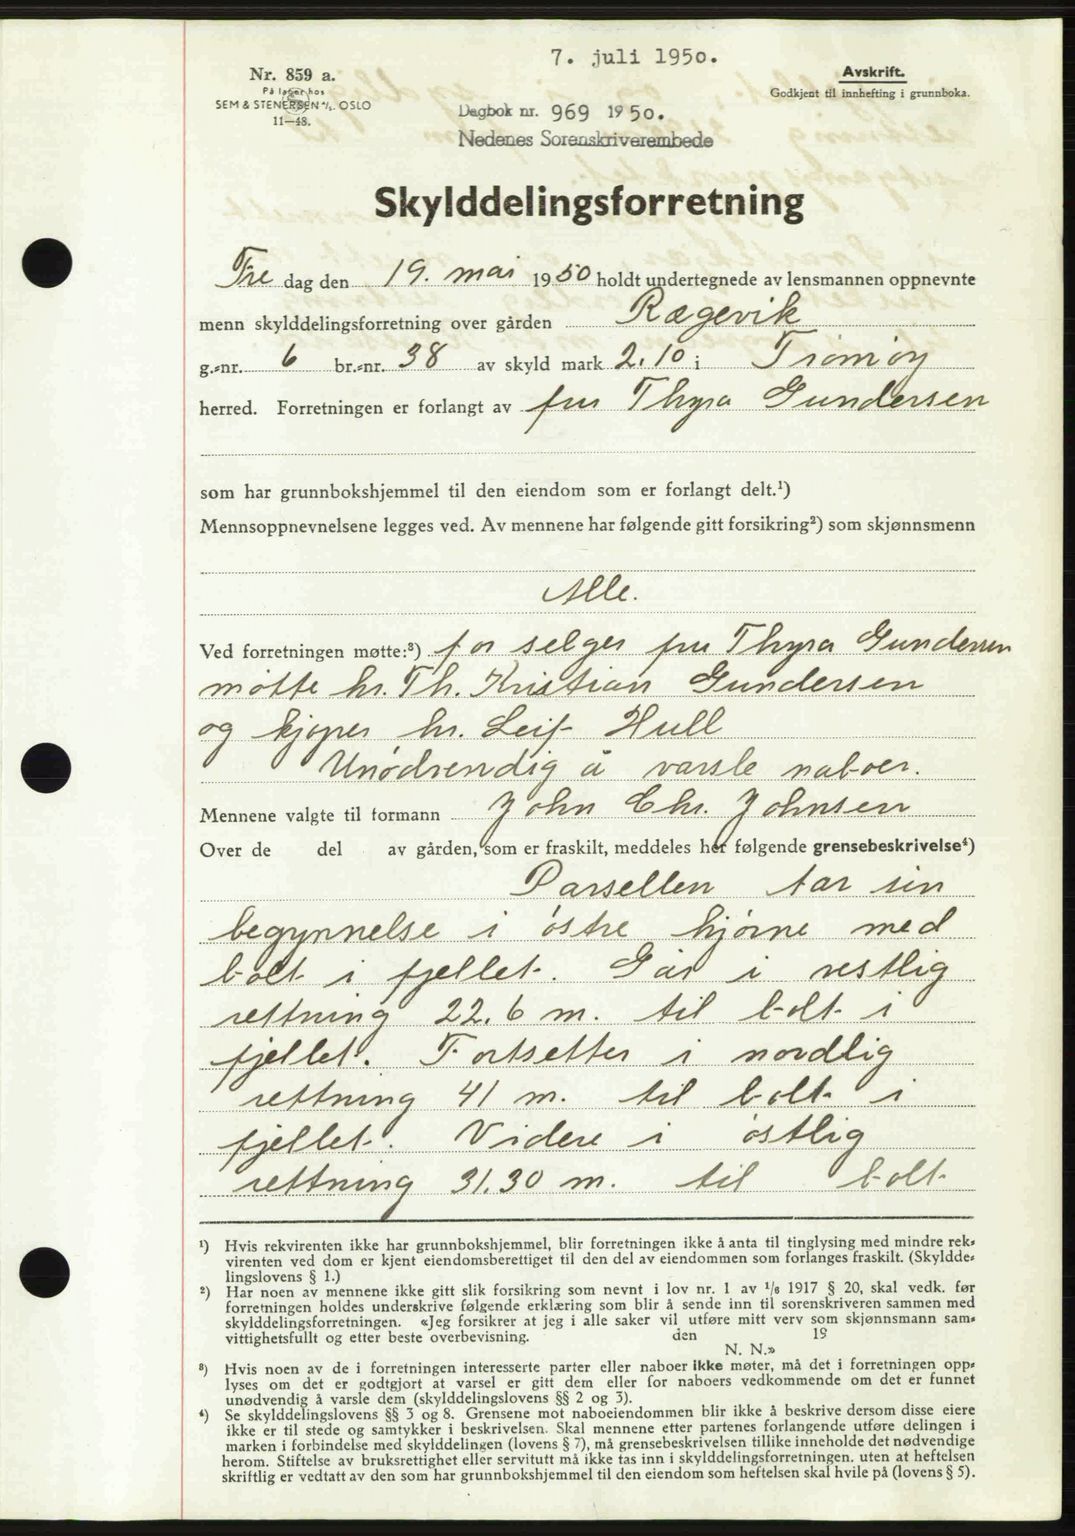 7. juli 1950.
Nr. 859 a.
På lager hos
SEM & STENERSEN A/S. OSLO
11—48.
Avskrift.
Godkjent til innhefting i grunnboka.
Dagbok nr. 969 1950.
Nedenes Sorenskriverembede
Skylddelingsforretning
Fre dag den 19. mai 1950 holdt undertegnede av lensmannen oppnevnte
menn skylddelingsforretning over gården Rægevik
g.-nr. 6 br.-nr. 38 av skyld mark 2.10 i Tromøy
herred. Forretningen er forlangt av fru Thyra Gundersen
som har grunnbokshjemmel til den eiendom som er forlangt delt.¹)
Mennsoppnevnelsene legges ved. Av mennene har følgende gitt forsikring²) som skjønnsmenn
Alle.
Ved forretningen møtte:³) for selger fru Thyra Gundersen
møtte hr. Th. Kristian Gundersen
og kjøper hr. Leif Hull
Unødvendig å varsle naboer.
Mennene valgte til formann John Chr. Johnsen
Over de del av gården, som er fraskilt, meddeles her følgende grensebeskrivelse⁴)
Parsellen tar sin
begynnelse i østre hjørne med
bolt i fjellet. Går i vestlig
rettning 22.6 m. til bolt i
fjellet. Fortsetter i nordlig
rettning 41 m. til bolt i
fjellet. Videre i østlig
rettning 31.30 m. til bolt
¹) Hvis rekvirenten ikke har grunnbokshjemmel, blir forretningen ikke å anta til tinglysing med mindre rek-
virenten ved dom er kjent eiendomsberettiget til den del av eiendommen som forlanges fraskilt. (Skyldde-
lingslovens § 1.)
²) Har noen av mennene ikke gitt slik forsikring som nevnt i lov nr. 1 av 1/6 1917 § 20, skal vedk. før
forretningen holdes underskrive følgende erklæring som blir å sende inn til sorenskriveren sammen med
skylddelingsforretningen. «Jeg forsikrer at jeg i alle saker vil utføre mitt verv som skjønnsmann sam-
vittighetsfullt og etter beste overbevisning. den 19
N. N.»
³) Hvis noen av de i forretningen interesserte parter eller naboer ikke møter, må det i forretningen opp-
lyses om det er godtgjort at varsel er gitt dem eller for naboers vedkommende om det er funnet
unødvendig å varsle dem (skylddelingslovens §§ 2 og 3).
⁴) Se skylddelingslovens §§ 3 og 8. Grensene mot naboeiendommen blir ikke å beskrive dersom disse eiere
ikke er til stede og samtykker i beskrivelsen. Skal mennene etter partenes forlangende utføre delingen i
marken i forbindelse med skylddelingen (lovens § 7), må grensebeskrivelsen tillike inneholde det nødvendige
herom. Stiftelse av bruksrettighet eller servitutt må ikke tas inn i skylddelingsforretningen. uten at heftelsen
skriftlig er vedtatt av den som har grunnbokshjemmel til den eiendom som heftelsen skal hvile på (lovens § 5).